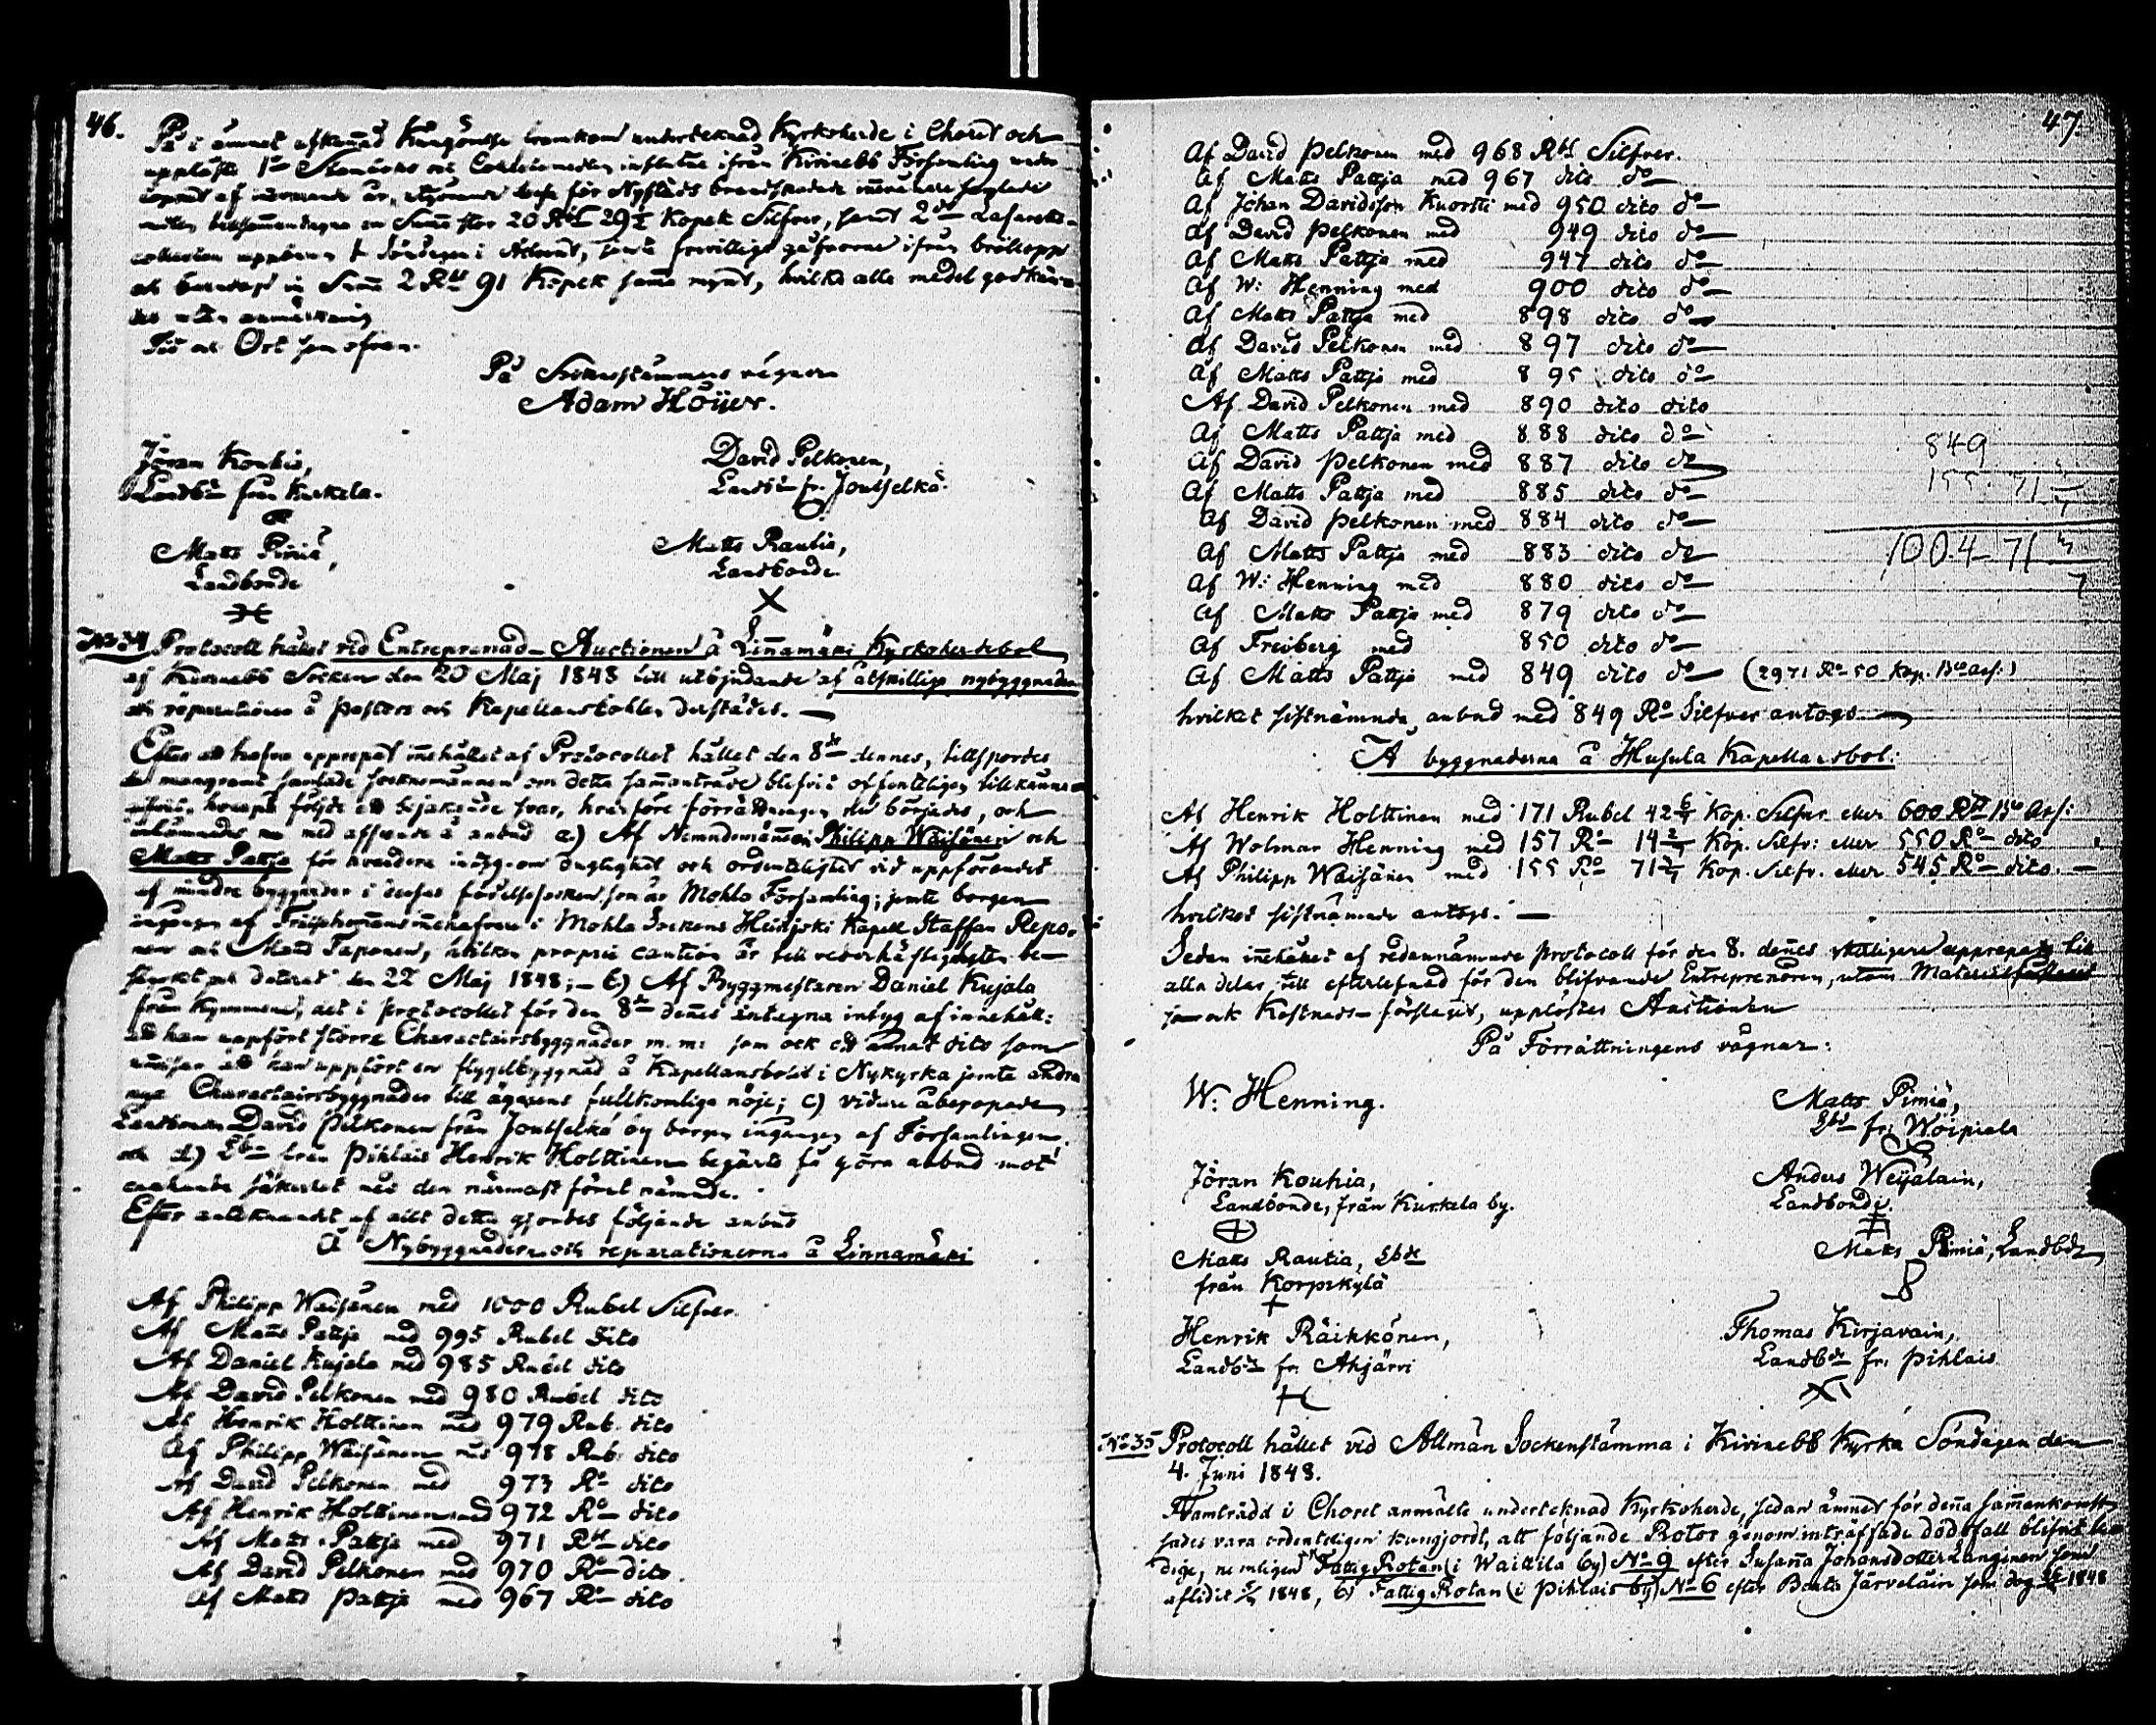 46.
På i ämnet afkunnad Kungörelse framkom undertecknad Kyrkoherde i Choret och
uppläste 1o Stamboks och Collectmedlen influtne ifrån Kivinebb Församling
af innevarande år, för Nystads brandskadade
en Summa stor 20 Rbl 29 1/2 Kopek Silfver, samt 2o Lasaretts-
collecten uppburen 1 Söndagen i Advent, samt frivilliga gåfvorna ifrån bröllopp
och barndop in Summa 2 Rbl 91 Kopek samma mynt, hvilka alla medel godkän-
des utan anmärkning
Tid och Ort som ofvan.
På Sockenstämmans vägnar
Adam Höijer.
Jöran Kouhia,
Landb. från Kurkela.
David Pelkonen,
Landb. fr. Joutselkä.
Matts Pimiä,
Landbonde
Matts Rautia,
Landbonde.
X
No 34 Protocoll hållet vid Entreprenad-Auctionen å Linnamäki Kyrkoherdebol
af Kivinebb Socken den 20 Maj 1848 till utbjudande af åtskillige nybyggnader
och reparationer å pastors och Kapellansbohlen derstädes. —
Efter att hafva upprepat innehållet af Protocollet hållet den 8de dennes, tillspordes
de mangrant samlade sockenemännen om detta sammanträde blefvit offentligen tillkänna-
gifvit, hvarpå följde ett bejakande svar, hvarföre förrättningen nu börjades, och
inlämnades nu med afseende å anbud a) Af Nemndemannen Philipp Waisänen och
Matts Pattja för hvardera intyg om duglighet och ordentlighet vid uppförandet
af mindre byggnader i deras födelsesocken som är Mohla Församling; jemte borgen
ingången af Mohla Sockens Heinjoki Kapell Staffan Repo-
nen och Mats Taponen, hvilken proprie caution är till vederhäftigheten be-
styrkt och daterat den 22 Maj 1848; — b) Af Byggmestaren Daniel Kujala
från Kymmene, det i protocollet för den 8de dennes intagna intyg af innehåll:
att han uppfört större Charactairsbyggnader m.m: som ock ett annat dito som
utvisar att han uppfört en flygelbyggnad å Kapellansbolet i Nykyrka jemte andra
nya Charactairsbyggnader till ägarens fullkomliga nöje; c) vidare åberopade
Landbonden David Pelkonen från Joutselkä by borgen ingången af Församlingen.
och d) Lbn från Pihlais Henrik Holttinen begärte få göra anbud mot
enahanda säkerhet med den närmast förut nämnde.
Efter antecknandet af allt detta gjordes följande anbud
Å Nybyggnaderna och reparationerna å Linnamäki
Af Philipp Waisänen med 1000 Rubel Silfver.
Af Matts Pattja med 995 Rubel dito
Af Daniel Kujala med 985 Rubel dito
Af David Pelkonen med 980 Rubel dito
Af Henrik Holttinen med 979 Rub. dito
Af Philipp Waisänen med 978 Rub. dito
Af David Pelkonen med 973 Ro dito
Af Henrik Holttinen med 972 Ro dito
Af Matts Pattja med 971 Rbl dito
Af David Pelkonen med 970 Ro dito.
Af Matts Pattja med 967 Ro dito
47.
Af David Pelkonen med 968 Rbl Silfver.
Af Matts Pattja med 967 dito do
Af Johan Davidsson Kuortti med 950 dito do
Af David Pelkonen med 949 dito do
Af Matts Pattja med 947 dito do
Af W: Henning med 900 dito do
Af Matts Pattja med 898 dito do
Af David Pelkonen med 897 dito do
Af Matts Pattja med 895 dito do
Af David Pelkonen med 890 dito dito
Af Matts Pattja med 888 dito do
Af David Pelkonen med 887 dito do
Af Matts Pattja med 885 dito do
Af David Pelkonen med 884 dito do
Af Matts Pattja med 883 dito do
Af W: Henning med 880 dito do
Af Matts Pattja med 879 dito do
Af Freiberg med 850 dito do
Af Matts Pattja med 849 dito do (2971 Ro 50 Kop. Bco Ass:)
849
155. 71 3/7
1004 71 3/7
hvilket sistnämnde anbud med 849 Ro Silfver antogs —
Å byggnaderna å Husula Kapellansbol:
Af Henrik Holttinen med 171 Rubel 42 6/7 Kop. Silfver eller 600 Rbl Bco Ass:
Af Wolmar Henning med 157 Ro 14 2/7 Kop. Silfv: eller 550 Ro dito
Af Philipp Waisänen med 155 Ro 71 3/7 Kop. Silfv. eller 545 Ro dito. —
hvilket sistnämnde antogs. —
Sedan innehållet af redannämnde protocoll för den 8. dennes ytterligare upprepats till
alla delar, till efterlefnad för den blifvande Entreprenören, utom Materials
som ock Kostnads-förslaget, upplöstes Auctionen
På Förrättningens vägnar:
W: Henning.
Matts Pimiä,
Lbd fr: Woipiala
Jöran Kouhia,
Landbonde, från Kurkela by.
Anders Weijalain,
Landbonde.
Matts Rautia, Lbde
från Korpikylä
+
Matts Pimiä, Landbd
8
Henrik Räikkönen,
Landbde fr. Ahjärvi
Thomas Kirjavain,
Landbde fr. Pihlais
No 35 Protocoll hållet vid Allmän Sockenstämma i Kivinebb Kyrka Söndagen den
4. Juni 1848.
Framträdd i Choret anmälte undertecknad Kyrkoherde, sedan ämnet för denna sammankomst
sades vara ordenteligen kungjordt, att följande Rotor genom inträffade dödsfall blifvit le-
dige, nemligen Fattig Rotan (i Waittila by) No 9 efter Susanna Johansdotter Langinen som
aflidit 1848, b) Fattig Rotan (i Pihlais by) No 6 efter Beata Järveläin som dog 1848